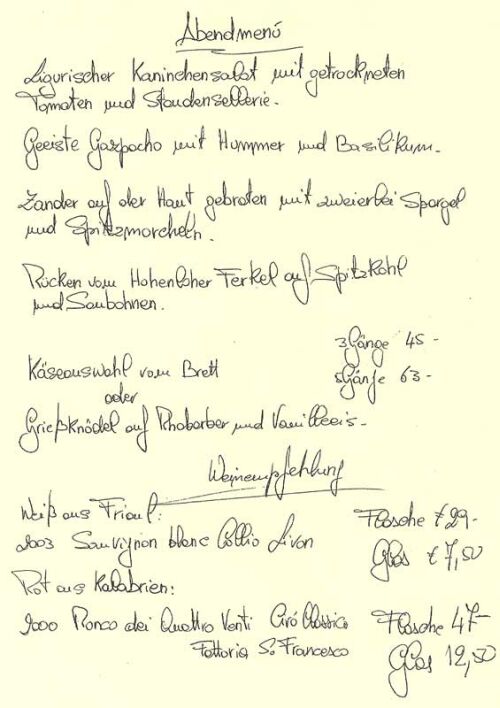 Abendmenü
Ligurischer Kaninchensalat mit getrockneten
Tomaten und Staudensellerie.
Geeiste Gazpacho mit Hummer und Basilikum.
Zander auf der Haut gebraten mit zweierlei Spargel
und Spitzmorcheln.
Rücken vom Hohenloher Ferkel auf Spitzkohl
und Saubohnen.
3Gänge 45-
Käseauswahl vom Brett
5Gänge 63-
oder
Grießknödel auf Rhabarber und Vanilleeis-
Weinempfehlung
Weiß aus Friaul:
Flasche €29-
2003 Sauvignon blanc Collio Livon
Glas €7,50
Rot aus Kalabrien:
2000 Ronco dei Quattro Venti Ciró Classico Flasche 47-
Fattoria S. Francesco
Glas 12,50